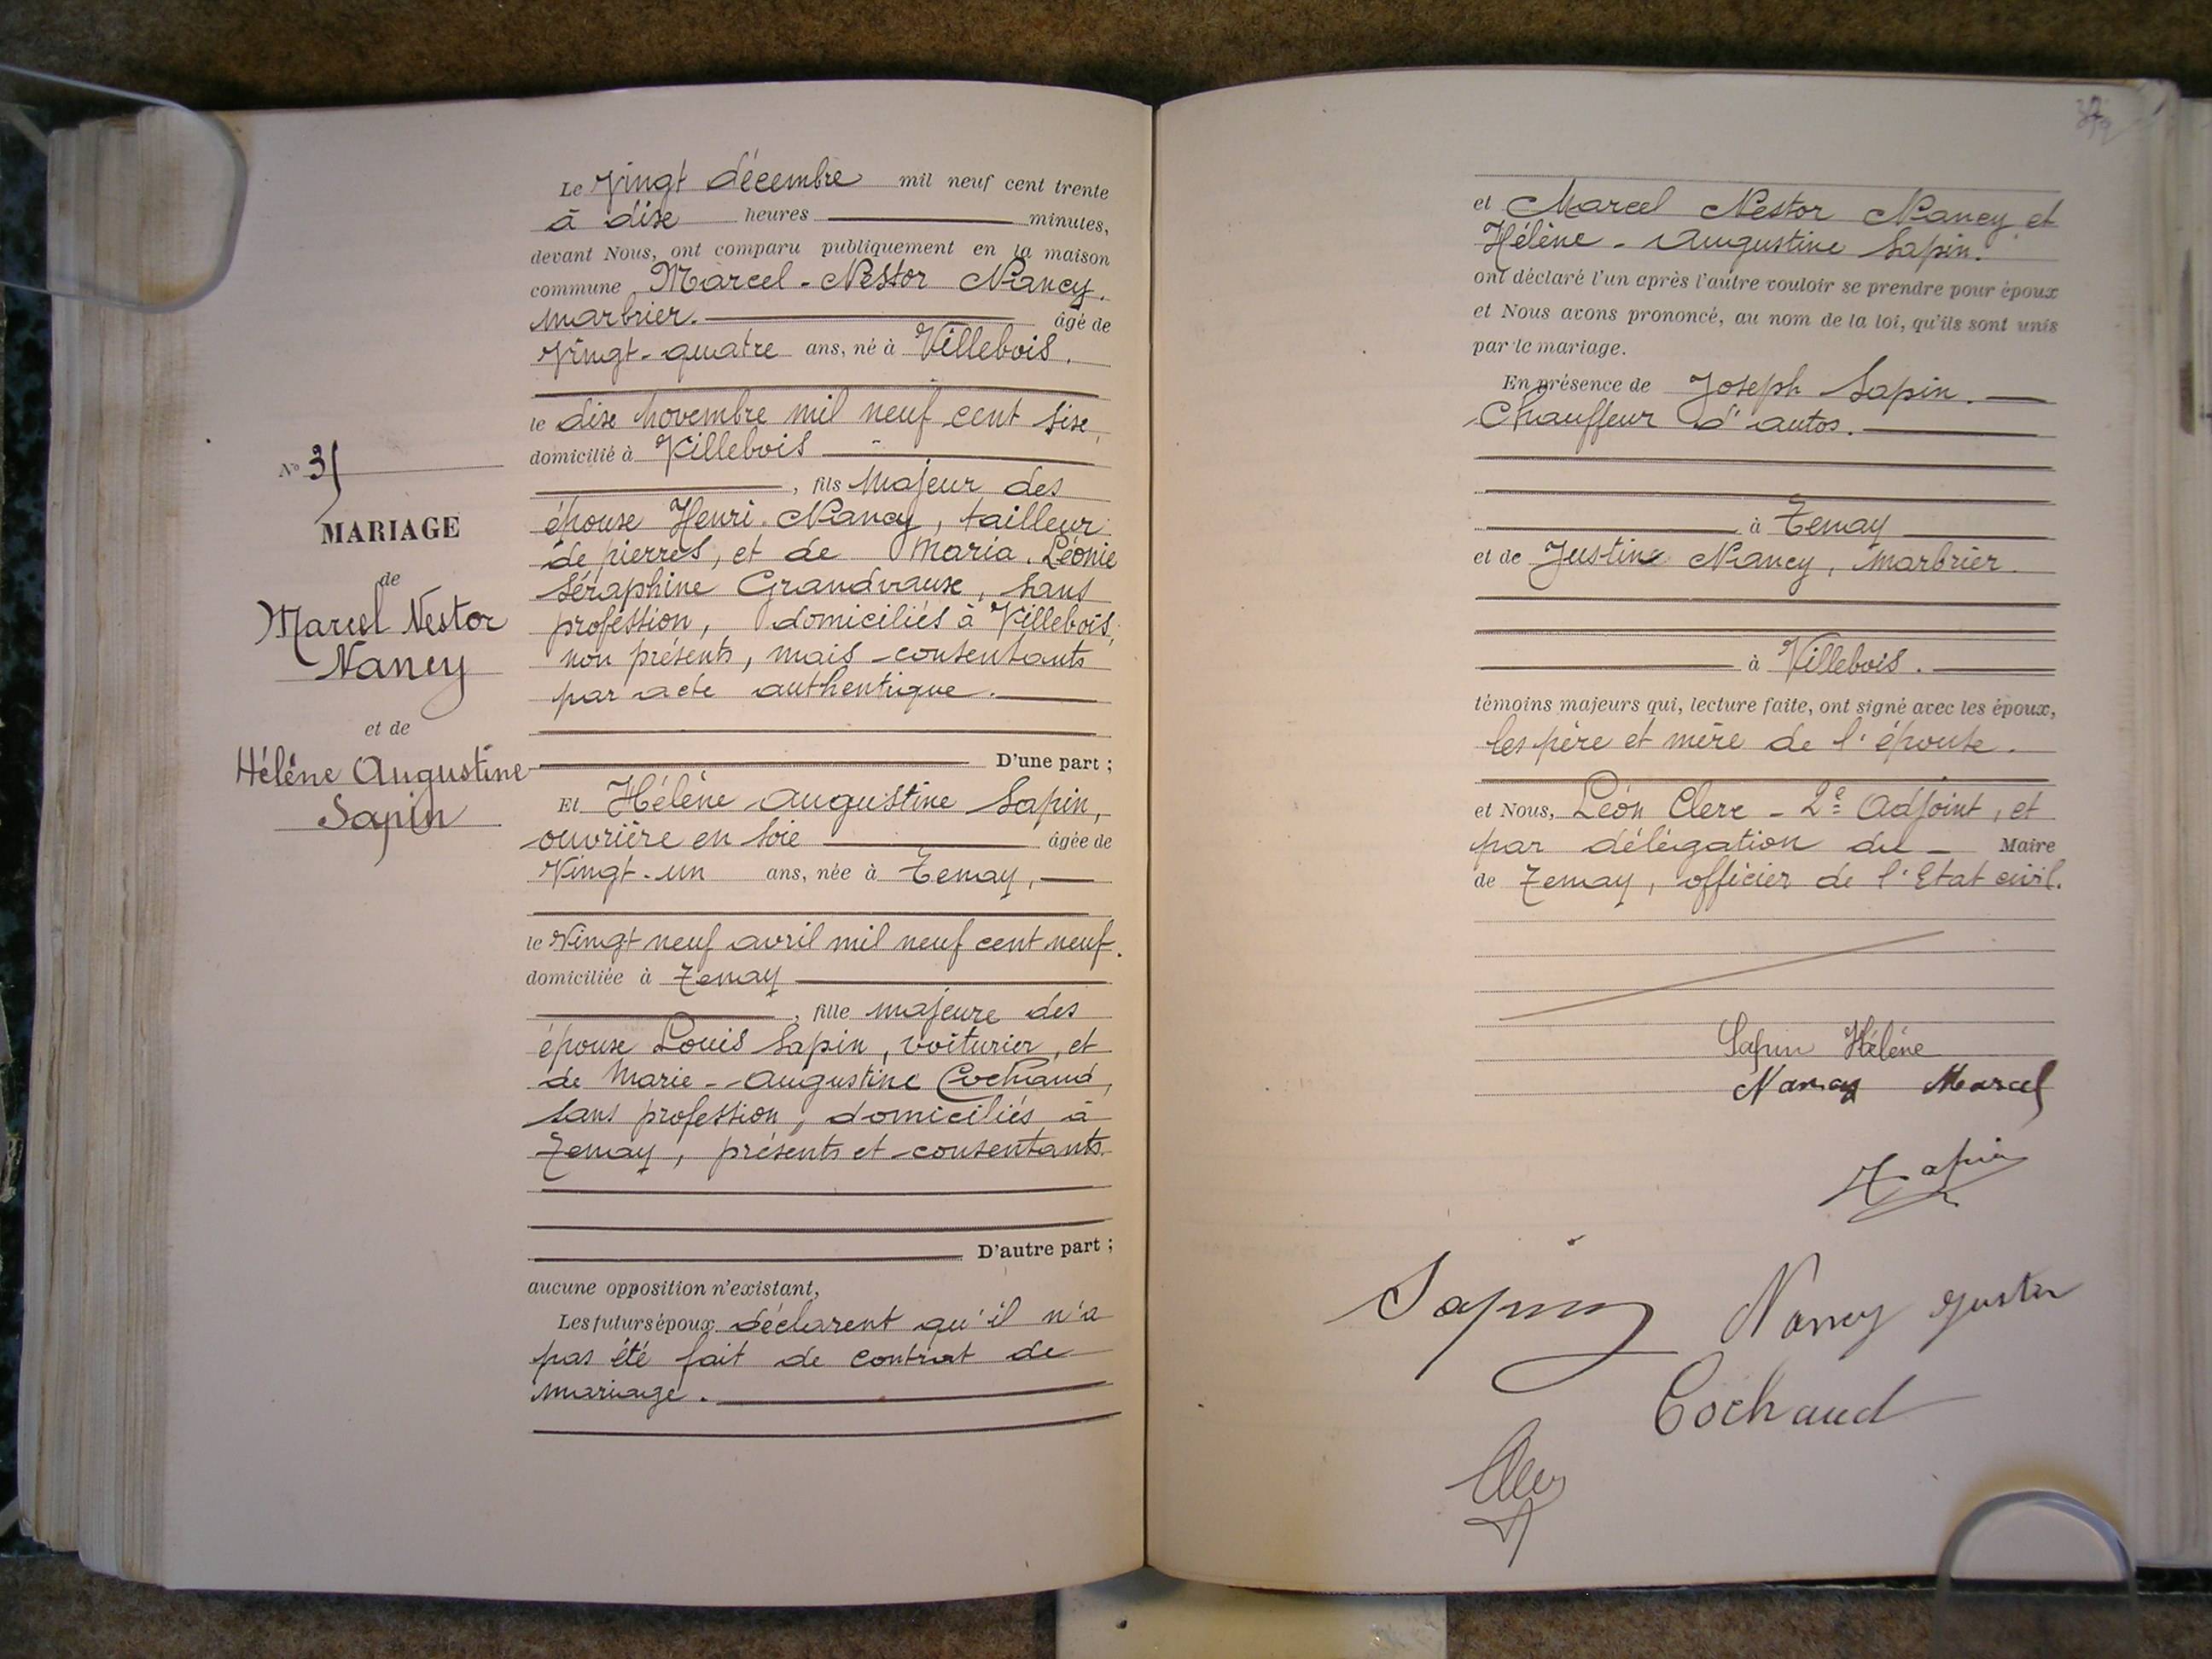 Le Vingt décembre mil neuf cent trente
à dix heures minutes,
devant Nous, ont comparu publiquement en la maison
commune Marcel-Nestor Nancy.
marbrier. âgé de
Vingt-quatre ans, né à Villebois.
le dix novembre mil neuf cent six,
domicilié à Villebois
, fils majeur des
époux Henri Nancy, tailleur
de pierres, et de Maria Léonie
Séraphine Grandvaux, sans
profession, domiciliés à Villebois,
non présents, mais consentants
par acte authentique.
D'une part ;
Et Hélène Augustine Sapin,
ouvrière en soie âgée de
Vingt-un ans, née à Tenay,
le Vingt neuf avril mil neuf cent neuf.
domiciliée à Tenay
, fille majeure des
époux Louis Sapin, voiturier, et
de Marie-Augustine Cochaud,
sans profession, domiciliés à
Tenay, présents et consentants.
D'autre part ;
aucune opposition n'existant,
Les futurs époux déclarent qu'il n'a
pas été fait de contrat de
mariage.
N° 31
MARIAGE
de
Marcel Nestor
Nancy
et de
Hélène Augustine
Sapin
et Marcel Nestor Nancy et
Hélène-Augustine Sapin.
ont déclaré l'un après l'autre vouloir se prendre pour époux
et Nous avons prononcé, au nom de la loi, qu'ils sont unis
par le mariage.
En présence de Joseph Sapin.
Chauffeur d'autos.
à Tenay
et de Justin Nancy, marbrier.
à Villebois.
témoins majeurs qui, lecture faite, ont signé avec les époux,
les père et mère de l'épouse.
et Nous, Léon Clerc - 2e Adjoint, et
par délégation du - Maire
de Tenay, officier de l'Etat civil.
Sapin Hélène
Nancy Marcel
Sapin
Sapin Nancy Justin
Cochaud